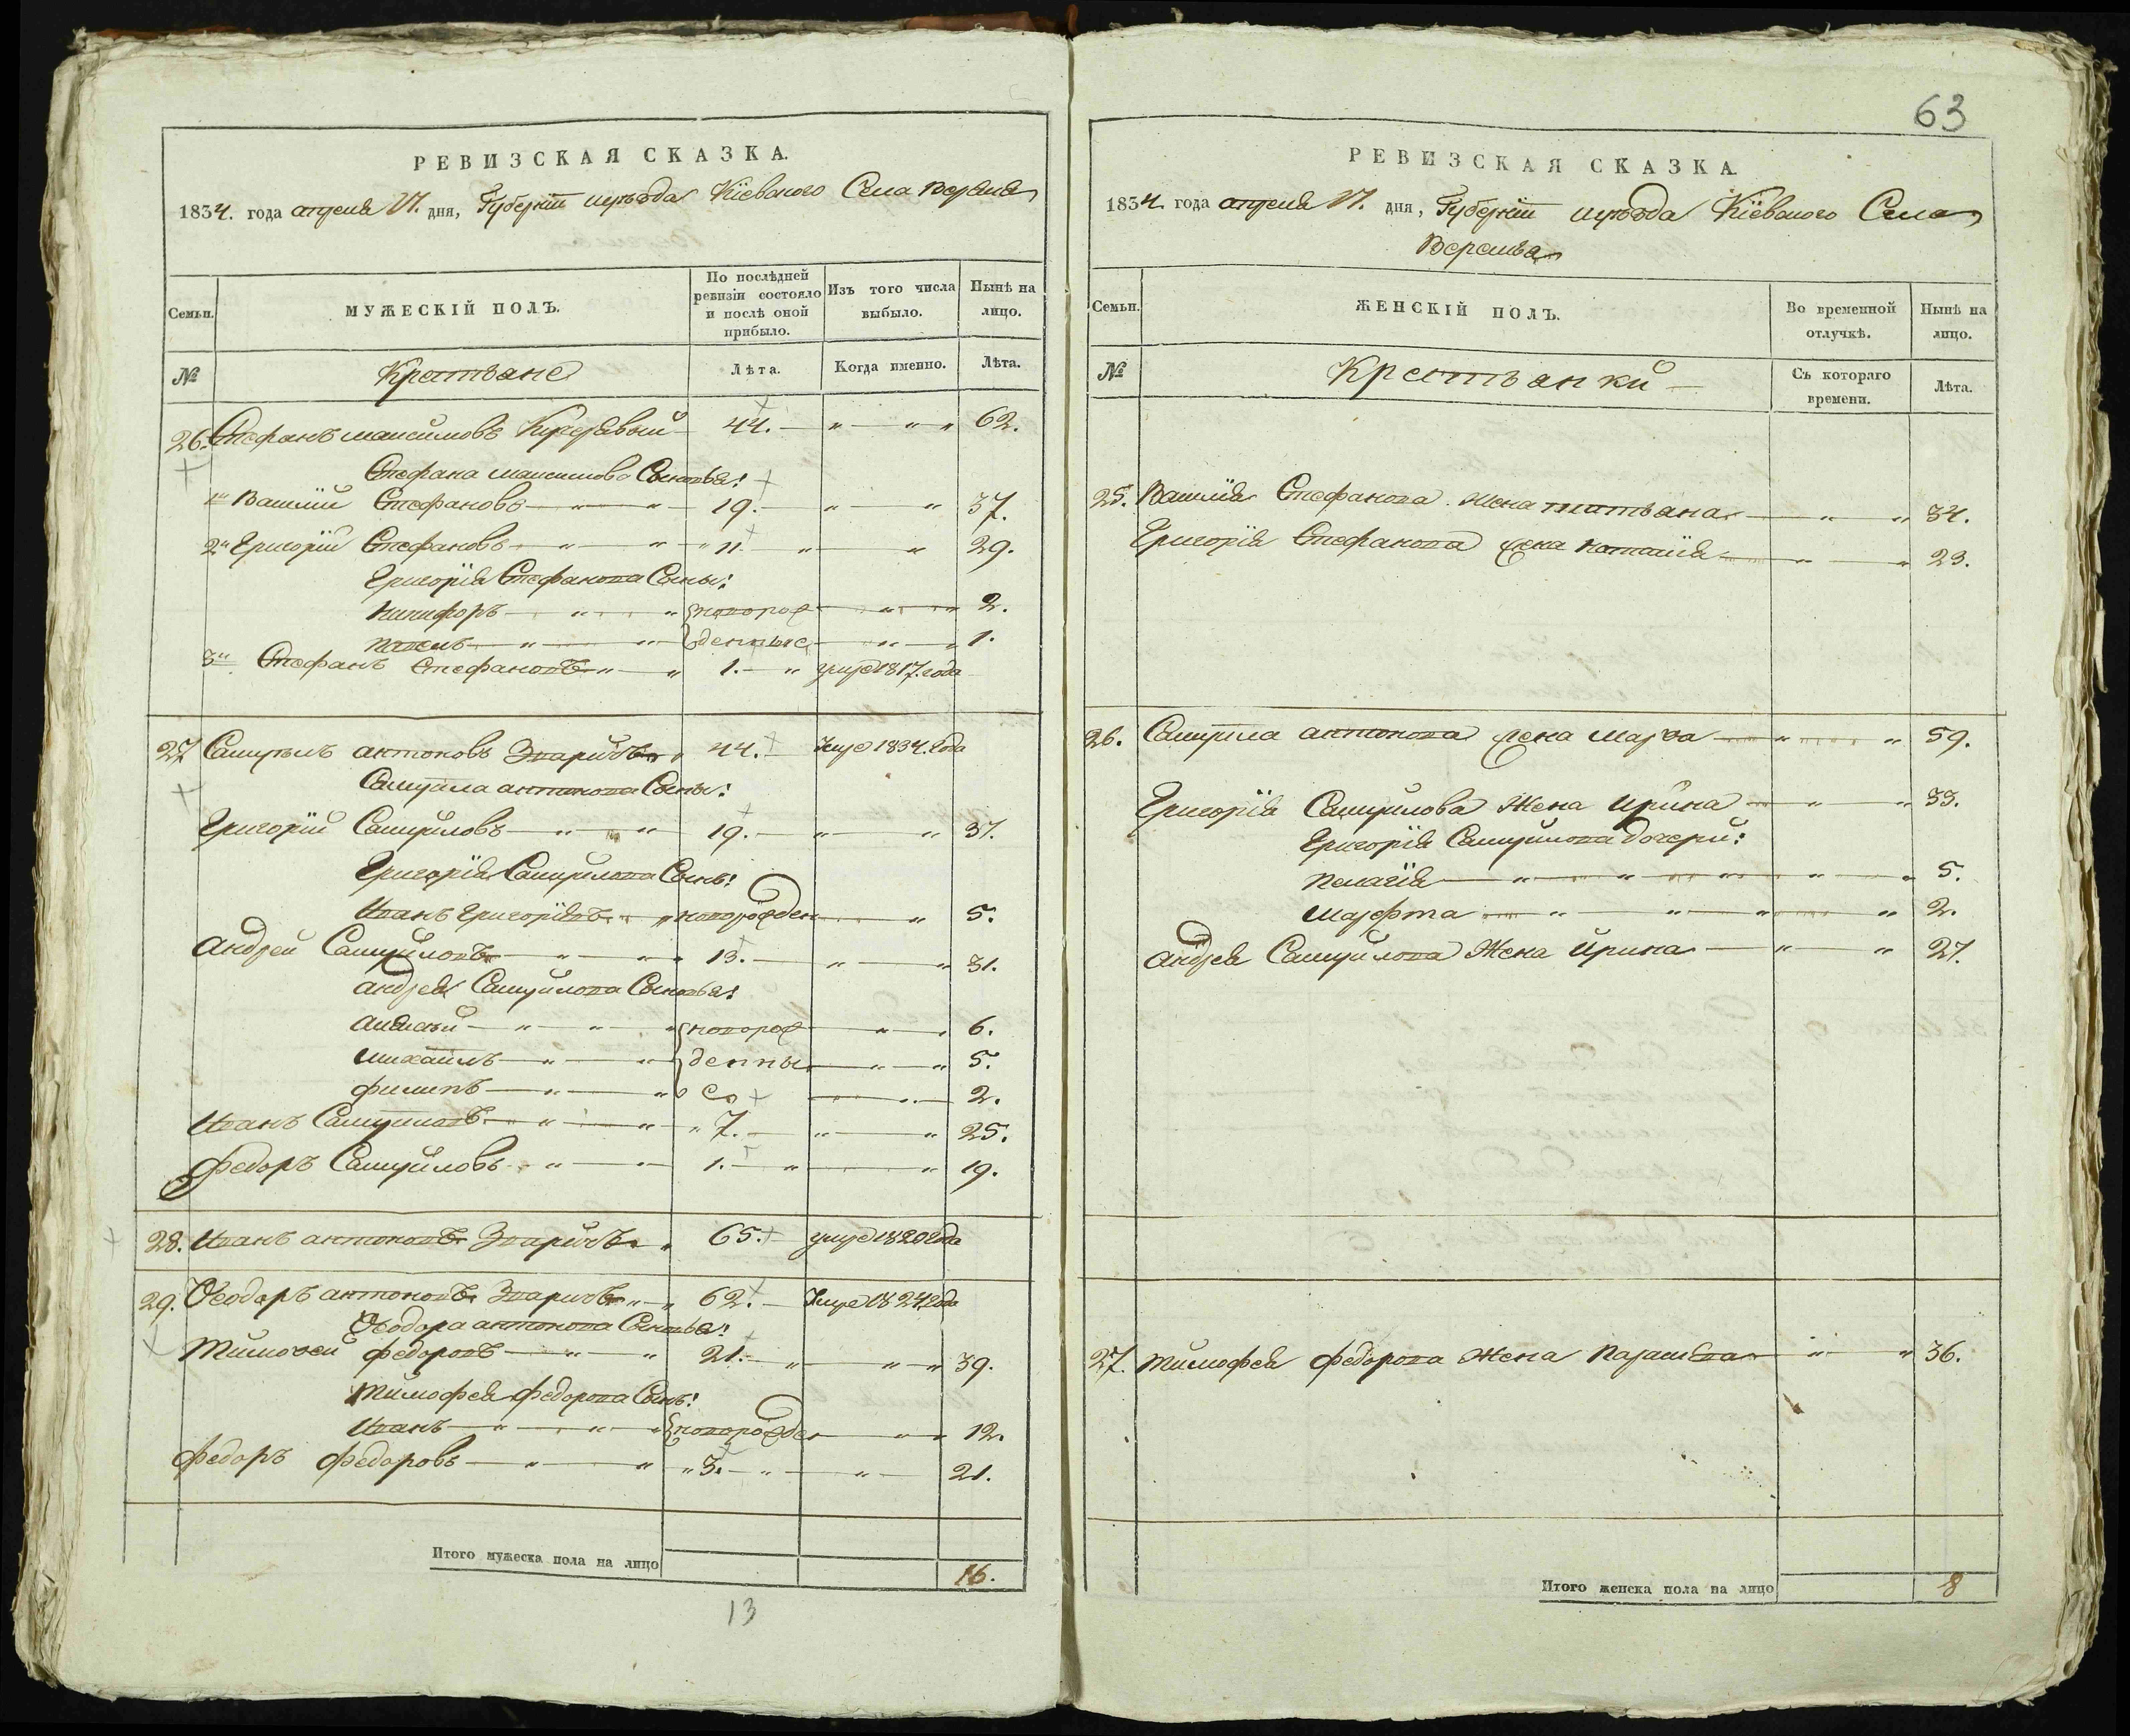 РЕВИЗСКАЯ СКАЗКА.
1834. года апреля 17. дня, Губернiи и уѣзда Кіевского Села
Семьи. МУЖЕСКІЙ ПОЛЪ. По послѣдней ревизіи состояло и послѣ оной прибыло. Изъ того числа выбыло. Нынѣ на лицо.
№ Крестьяне Лѣта. Когда именно. Лѣта.
26. Стефанъ Максимовъ Кучерявый 44. 62.
Стефана Максимова Сыновья:
1й Василій Стефановъ 19. 37.
2й Григорій Стефановъ 11 29.
Григорія Стефанова Сыны:
Никифоръ новорож 2.
Павелъ денные 1.
3й Стефанъ Стефановъ 1. умре 1817. года
27 Самуилъ Антоновъ Зваричъ 44. Умре 1834. года
Самуила Антонова Сыны:
Григорій Самуйловъ 19. 37.
Григорія Самуйлова Сынъ:
Иванъ Григоріевъ новорожден 5.
Андрей Самуйловъ 13. 31.
Андрея Самуйлова Сыновья:
Алексѣй новорож 6.
Михаилъ денны 5.
Филипъ е 2.
Иванъ Самуиловъ 7. 25.
Федоръ Самуйловъ 1. 19.
28. Иванъ Антоновъ Зваричъ 65. умре 1820 года
29. Ѳеодоръ Антоновъ Зваричъ 62. Умре 1824 года
Ѳеодора Антонова Сыновья:
Тимоѳей Федоровъ 21. 39.
Тимофея Федорова Сынъ:
Иванъ новорожде 12.
Федоръ Федоровъ 3. 21.
Итого мужеска пола на лицо 16.
13
63
РЕВИЗСКАЯ СКАЗКА.
1834. года апреля 17. дня, Губернiи и уѣзда Кіевского Села
Семьи. ЖЕНСКІЙ ПОЛЪ. Во временной отлучкѣ. Нынѣ на лицо.
№ Крестьянки Съ котораго времени. Лѣта.
25. Василія Стефанова Жена Татьяна 34.
Григорія Стефанова жена Наталія 23.
26. Самуила Антонова жена Марѳа 59.
Григорія Самуйлова Жена Ирина 33.
Григорія Самуйлова дочери:
Пелагія 5.
Марфта 2.
Андрея Самуйлова Жена Ирина 27.
27. Тимофея Федорова Жена Параскева 36.
Итого женска пола на лицо 8